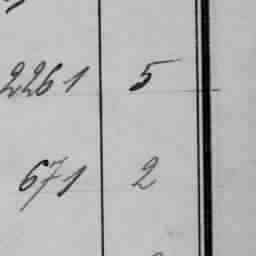 2261 5
671 2